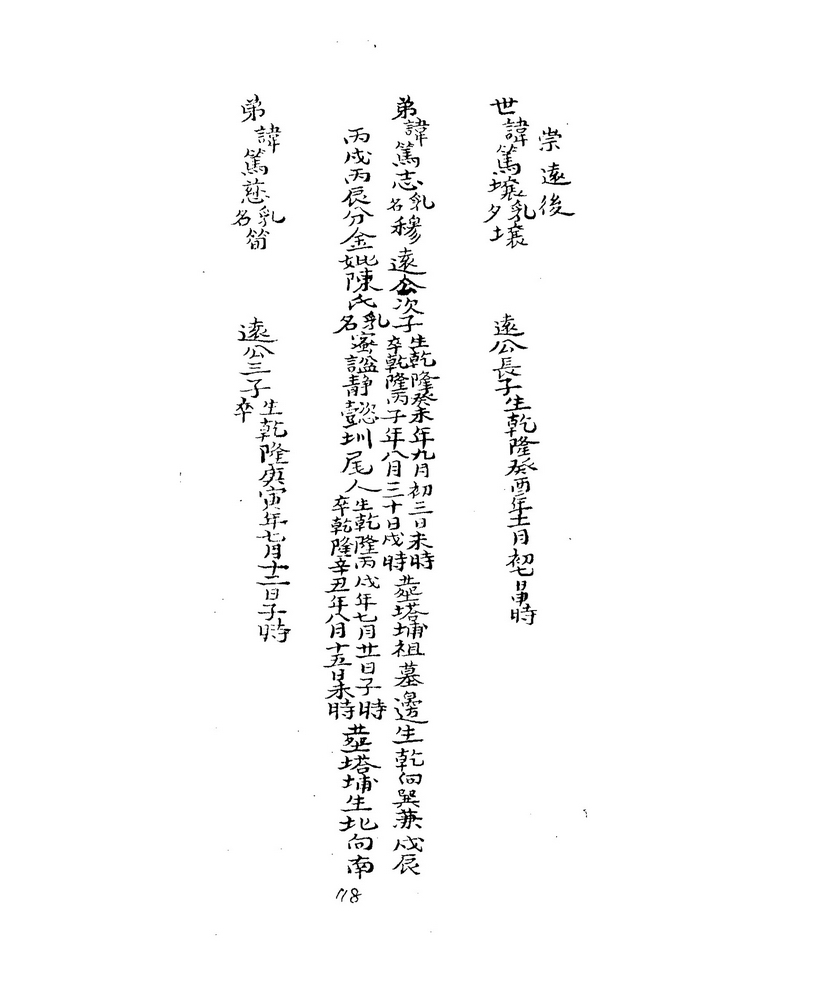 崇遠後
世諱篤壤乳名壤 遠公長子生乾隆癸酉年十一月初七日申時
弟諱篤志乳名穆 遠公次子生乾隆癸未年九月初三日未時卒乾隆丙子年八月三十日戌時葬塔埔祖墓邊生乾向巽兼戌辰
丙戌丙辰分金妣陳氏乳名蜜謚靜懿圳尾人生乾隆丙戌年七月廿日子時卒乾隆辛丑年八月十五日未時葬塔埔生北向南
弟諱篤慈乳名筍 遠公三子生乾隆庚寅年七月十二日子時卒
78